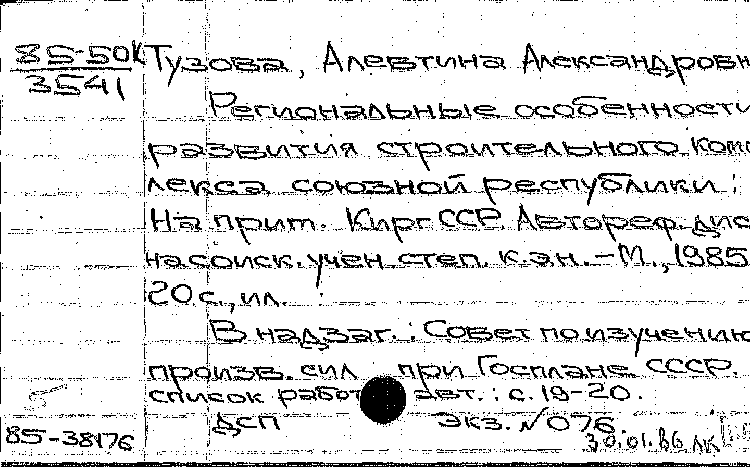 85-50К Тузова, Алевтина Александровн
3541
Региональные особенности
развития строительного комп
лекса союзной республики:
На прим. Кирг ССР. Автореф. дис
на соиск. учен степ. к.э.н. – М., 1985
20 с., ил.
В надзаг.: Совет по изучению
произв. сил при Госплане СССР.
список работ авт.: с. 19-20.
ДСП Экз. № 076
85-38176 30.01.86